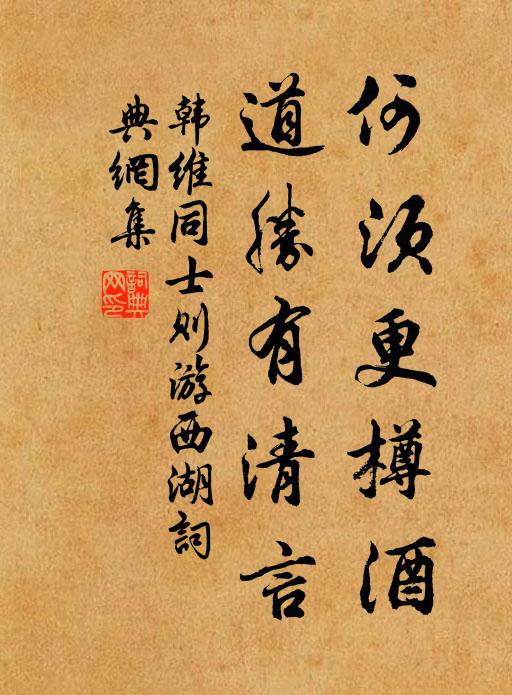 何须更樽酒
道勝有清言
韩维同士则游西湖詞
典網集
詞典網印